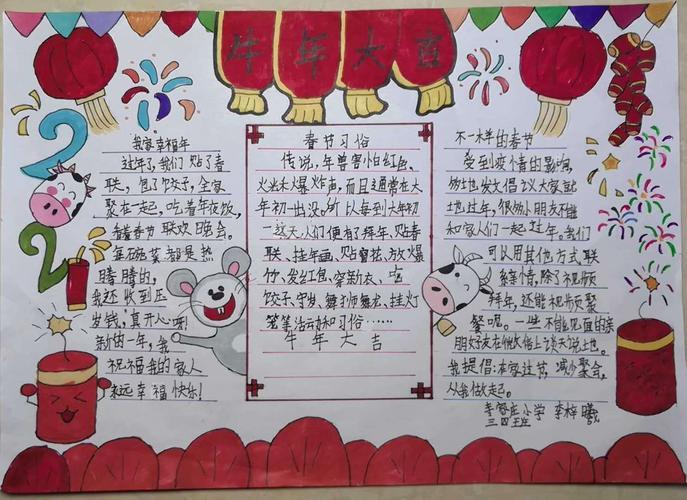 牛年大吉
2021
我家幸福年
过年了,我们贴了春
联,包了饺子,全家
聚在一起,吃着年夜饭,
看着春节联欢晚会。
每碗菜都是热
腾腾的,
我还收到压
岁钱,真开心呀!
新的一年,我
祝福我的家人
永远幸福快乐!
春节习俗
传说,年兽害怕红色、
火光和爆炸声,而且通常在大
年初一出没,所以每到大年初
一这天,人们便有了拜年、贴春
联、挂年画、贴窗花、放爆
竹、发红包、穿新衣、吃
饺子、守岁、舞狮舞龙、挂灯
笼等活动和习俗……
牛年大吉
不一样的春节
受到疫情的影响,
各地发文倡议大家就
地过年,很多小朋友不能
和家人们一起过年。我们
可以用其他方式联
络亲情,除了视频
拜年,还能视频聚
餐呢。一些不能见面的亲
朋好友在网络上谈天说地。
我提倡:本家过节,减少聚会,
从我做起。
李家庄小学 李梓曦
三四班